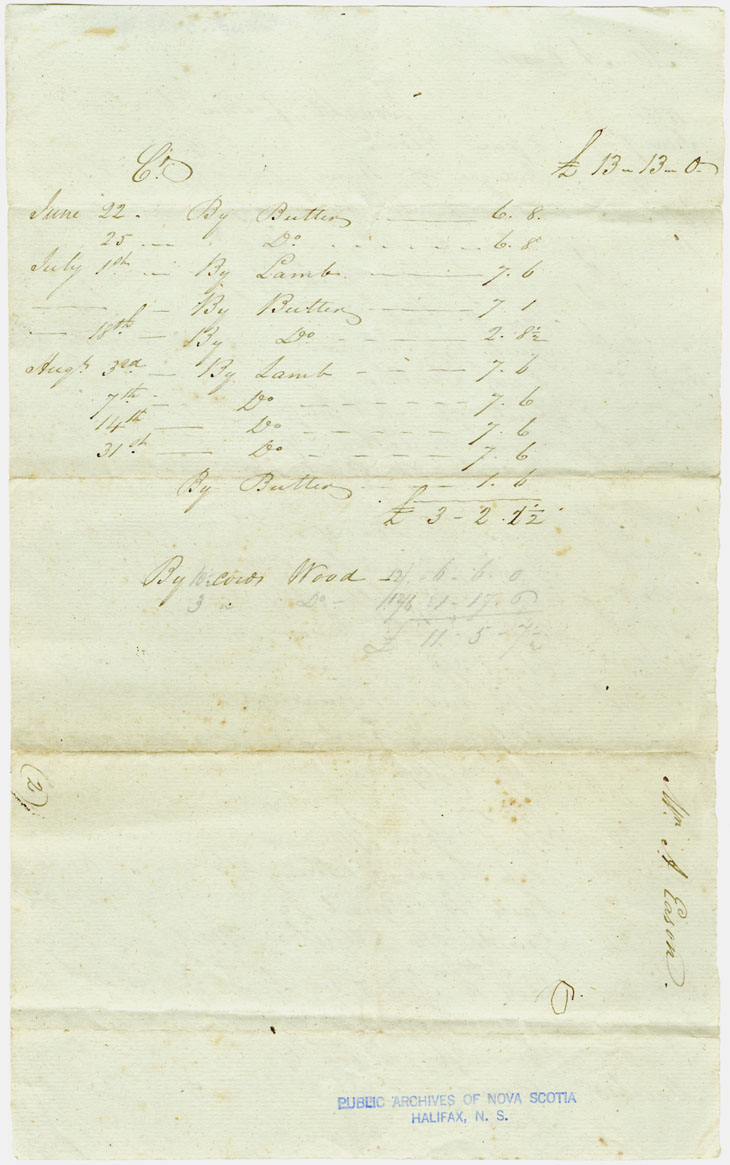 Cr.
£ 13-13-0
June 22 - By Butter - 6. 8.
25 - Do - 6. 8
July 1st - By Lamb - 7. 6
- By Butter - 7. 1
- 18th - By Do - 2. 8½
Augt. 3rd - By Lamb - 7. 6
7th - Do - 7. 6
14th - Do - 7. 6
31st - Do - 7. 6
By Butter - 1. 6
£ 3 - 2. 1½
By cords Wood 12/ 6 - 6 - 0
3 " Do - 12/6 1 - 17. 6
£ 11 - 5 - 7½
(2)
Mr. A Eason.
PUBLIC ARCHIVES OF NOVA SCOTIA
HALIFAX, N. S.